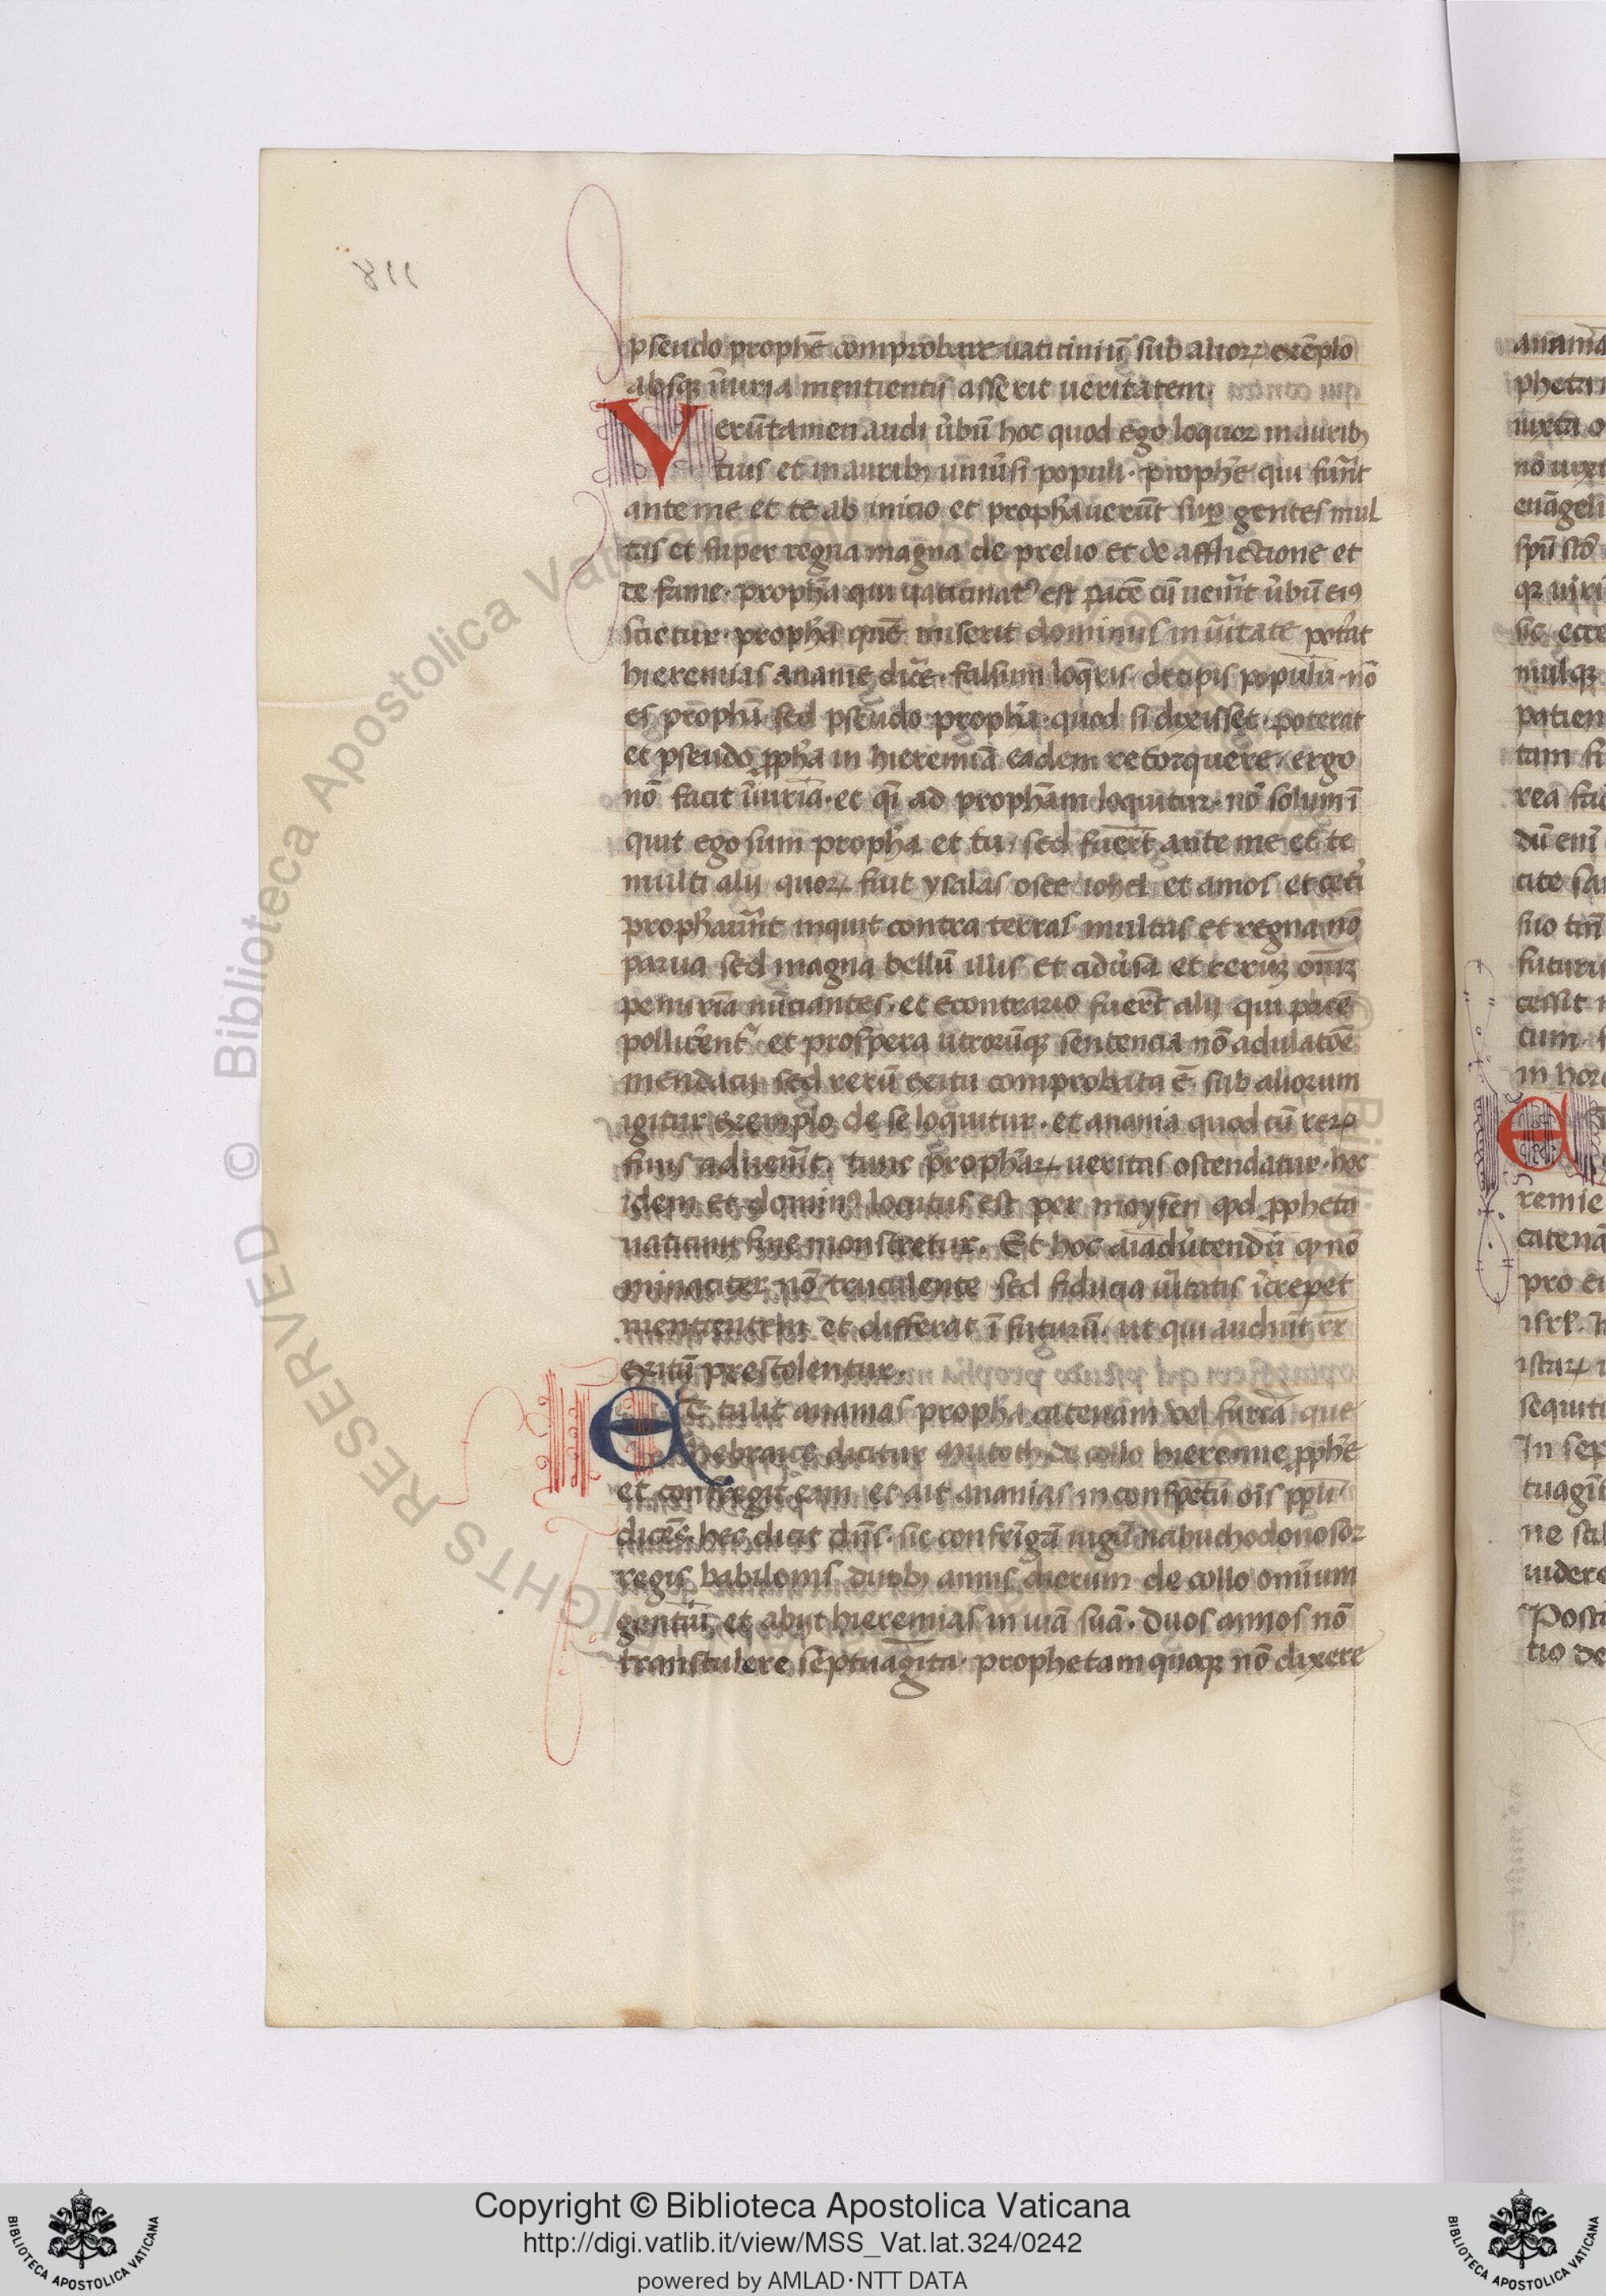 pseudo prophē comproba͞re uaticiniū sub alioꝝ exēplo
absqꝫ iīuria mentientis asserit ueritatem.
Verūtamen audi ūbū hoc quod ego loquor in auribꝫ
tuis et in auribꝫ uniūsi populi · prophē qui fuert̄
ante me et te ab inicio et propħauerūt suꝑ gentes mul
tas et super regna magna de prelio et de afflictione et
de fame · propħa qui uaticinatꝰ est pacē cū uenīt ūbū eiꝰ
scietur · propħa quē miserit dominus in ūitate potāt
hieremias ananie dicē · falsum loqrīs · decipis populū · nō
es propħa sed pseudo propħa · quod si dixisset · poterat
et pseudo ꝓpħa in hieremiā eadem retorquere · ergo
nō facit iīuriā · et qͥ ad propħam loquitur · nō solum ī
quit ego sum propħa et tu · sed fuert̄ ante me et te
multi alij quoꝝ fuit ysaias osee iohel et amos et cetī
propħaūnt inquit contra terras multas et regna nō
parua sed magna bellū illis et adūsa et rerūqꝫ om̄iū
penuriā nūciantes · et econtrario fuert̄ alij qui pacē
pollicēnt᷑ et prospera utrorūqꝫ sentencia nō adulatōe
mendacij sed rerū exitu comprobata ē · sub aliorum
igitur exemplo de se loquitur · et anania quod cū reꝝ
finis aduenīt · tunc propħaꝝ ueritas ostendatur · hoc
idem et dominꝰ locutus est per moysen qd ꝓpheta
uaticinij fine monstretur. Et hoc aīaduīendū qꝫ nō
minaciter nō truculente sed fiducia ūitatis īcrepet
mentientem et differat ī futurū · ut qui audiūt rerū
exitū prestolentur.
Et tulit ananias propħa catenam vel furcā que
hebraice dicitur mutoth de collo hieremie ꝓpħe
et confregit eam et ait ananias in conspectu ois ꝓpli
dicēs · hec dicit dn̄s · sic confrīgā iugū nabuchodonosor
regis babilonis duobꝫ annis dierum de collo omīum
gentiū et abijt hieremias in uiā suā · duos annos nō
transtulere septuagīta · prophetam quoqꝫ nō dixere
Copyright © Biblioteca Apostolica Vaticana
http://digi.vatlib.it/view/MSS_Vat.lat.324/0242
powered by AMLAD·NTT DATA